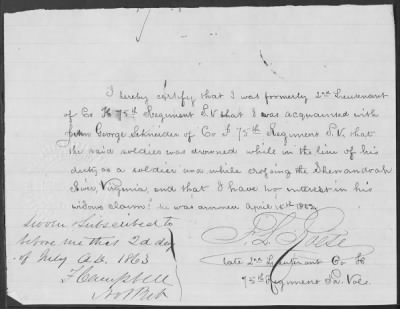 I hereby certify that I was formerly 2nd Lieutenant
of Co H 75th Regiment P.V. that I was acquainted with
George Schneider of Co F 75th Regiment P.V. that
the said soldier was drowned while in the line of his
duty as a soldier and while crossing the Shenandoah
River, Virginia, and that I have no interest in his
widows claim. he was drowned April 15th 1862
Sworn & Subscribed to
before me this 2d day
of July A.D. 1863
F Campbell
Not Pub
late 2nd Lieutenant Co H
75th Regiment Pa. Vols.